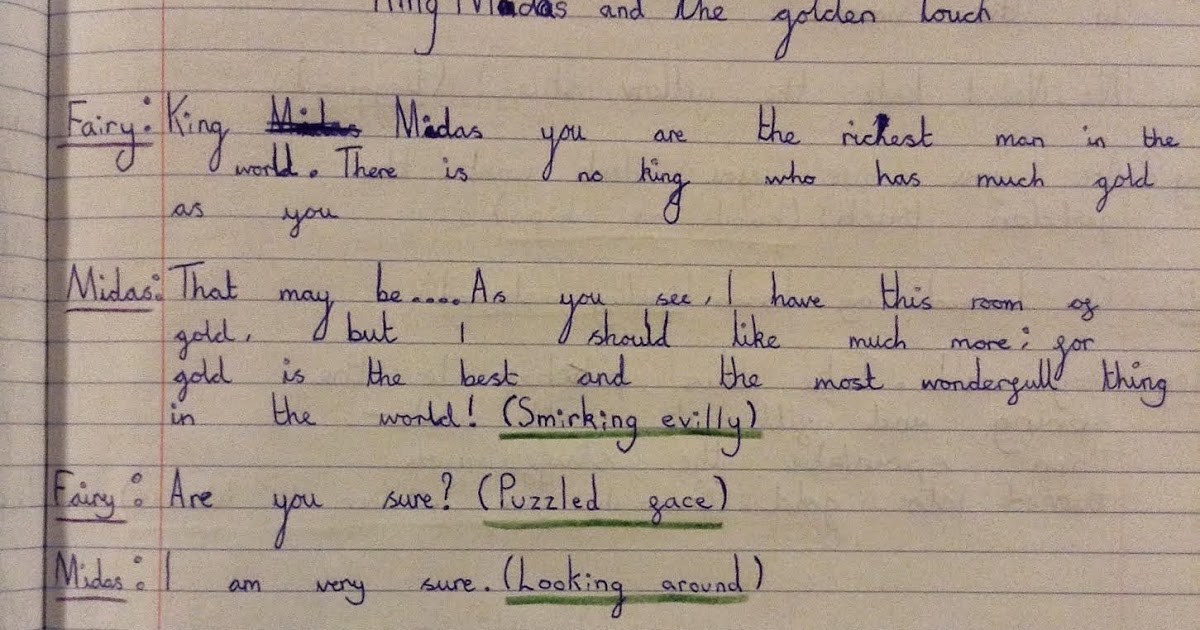 King Midas and the golden touch
Fairy: King Midas Midas you are the richest man in the
world. There is no king who has much gold
as you
Midas: That may be.... As you see, I have this room of
gold, but I should like much more; for
gold is the best and the most wonderfull thing
in the world! (Smirking evilly)
Fairy: Are you sure? (Puzzled face)
Midas: I am very sure. (Looking around)